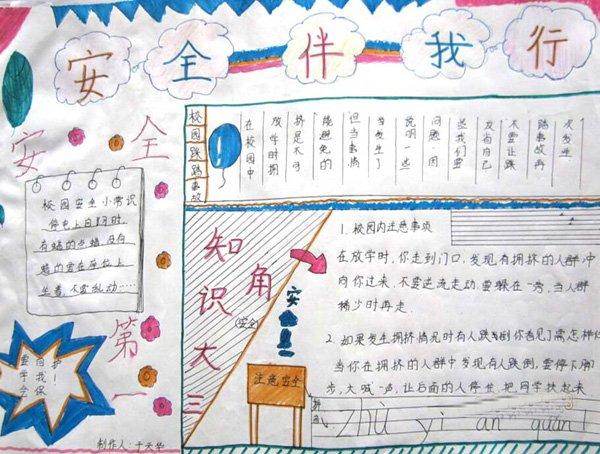 安全伴我行
安全第一
校园安全小常识
停电上自习时,
有蜡的点蜡,没有
蜡的要在座位上
坐着,不要乱动……
要学会
自我
护!
制作人:于天华
校园践踏事故
在校园中
放学时拥
挤是不可
能避免的
但当事情
当发生了
说明一些
问题.因
些我们要
不要让践
踏事故再
次发生
知识大三角
(安全)
注意安全
1. 校园内注意事项
在放学时,你走到门口,发现有拥挤的人群冲
向你过来,不要逆流走动,要躲在一旁,当人群
稀少时再走.
2. 如果发生拥挤情况时有人跌倒你看见了需怎样做
当你在拥挤的人群中发现有人跌倒,要停下脚
步,大喊一声,让后面的人停步,把同学扶起来
拼音
zhù yì an quan!